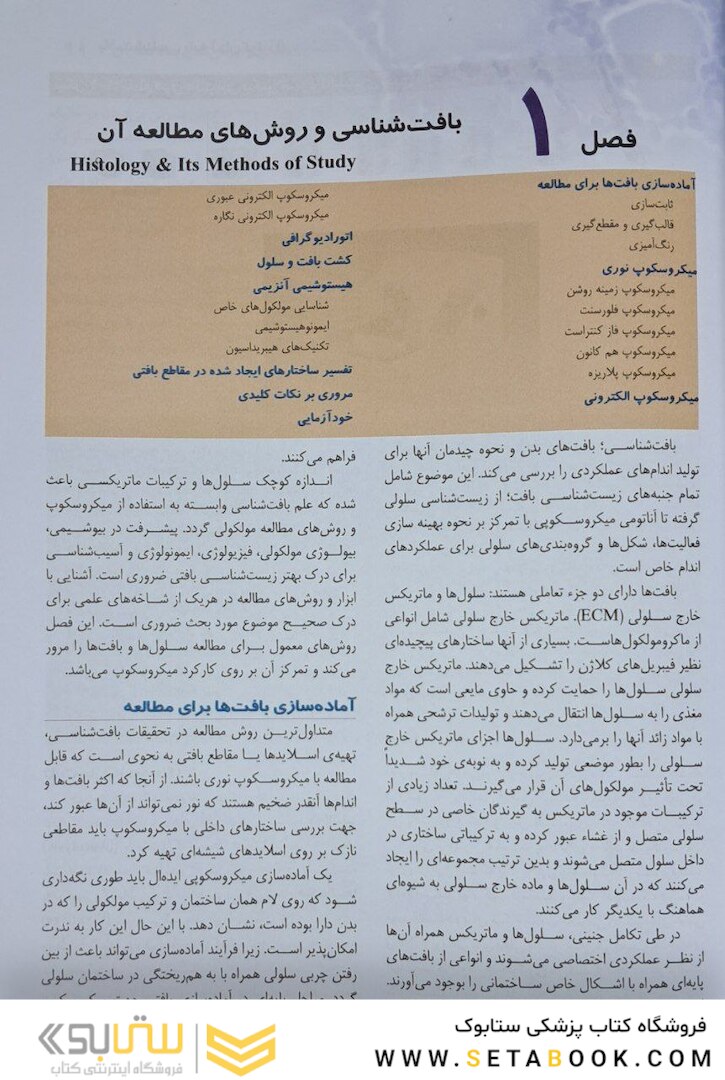 فصل ۱
بافت‌شناسی و روش‌های مطالعه آن
Histology & Its Methods of Study
آماده‌سازی بافت‌ها برای مطالعه
ثابت‌سازی
قالب‌گیری و مقطع‌گیری
رنگ‌آمیزی
میکروسکوپ نوری
میکروسکوپ زمینه روشن
میکروسکوپ فلورسنت
میکروسکوپ فاز کنتراست
میکروسکوپ هم کانون
میکروسکوپ پلاریزه
میکروسکوپ الکترونی
میکروسکوپ الکترونی عبوری
میکروسکوپ الکترونی نگاره
اتورادیوگرافی
کشت بافت و سلول
هیستوشیمی آنزیمی
شناسایی مولکول‌های خاص
ایمونوهیستوشیمی
تکنیک‌های هیبریداسیون
تفسیر ساختارهای ایجاد شده در مقاطع بافتی
مروری بر نکات کلیدی
خودآزمایی
بافت‌شناسی؛ بافت‌های بدن و نحوه چیدمان آنها برای
تولید اندام‌های عملکردی را بررسی می‌کند. این موضوع شامل
تمام جنبه‌های زیست‌شناسی بافت؛ از زیست‌شناسی سلولی
گرفته تا آناتومی میکروسکوپی با تمرکز بر نحوه بهینه سازی
فعالیت‌ها، شکل‌ها و گروه‌بندی‌های سلولی برای عملکردهای
اندام خاص است.
بافت‌ها دارای دو جزء تعاملی هستند: سلول‌ها و ماتریکس
خارج سلولی (ECM). ماتریکس خارج سلولی شامل انواعی
از ماکرومولکول‌هاست. بسیاری از آنها ساختارهای پیچیده‌ای
نظیر فیبریل‌های کلاژن را تشکیل می‌دهند. ماتریکس خارج
سلولی سلول‌ها را حمایت کرده و حاوی مایعی است که مواد
مغذی را به سلول‌ها انتقال می‌دهند و تولیدات ترشحی همراه
با مواد زائد آنها را برمی‌دارد. سلول‌ها اجزای ماتریکس خارج
سلولی را بطور موضعی تولید کرده و به نوبه‌ی خود شدیداً
تحت تأثیر مولکول‌های آن قرار می‌گیرند. تعداد زیادی از
ترکیبات موجود در ماتریکس به گیرندگان خاصی در سطح
سلولی متصل و از غشاء عبور کرده و به ترکیباتی ساختاری در
داخل سلول متصل می‌شوند و بدین ترتیب مجموعه‌ای را ایجاد
می‌کنند که در آن سلول‌ها و ماده خارج سلولی به شیوه‌ای
هماهنگ با یکدیگر کار می‌کنند.
در طی تکامل جنینی، سلول‌ها و ماتریکس همراه آن‌ها
از نظر عملکردی اختصاصی می‌شوند و انواعی از بافت‌های
پایه‌ای همراه با اشکال خاص ساختمانی را بوجود می‌آورند.
فراهم می‌کنند.
اندازه کوچک سلول‌ها و ترکیبات ماتریکسی باعث
شده که علم بافت‌شناسی وابسته به استفاده از میکروسکوپ
و روش‌های مطالعه مولکولی گردد. پیشرفت در بیوشیمی،
بیولوژی مولکولی، فیزیولوژی، ایمونولوژی و آسیب‌شناسی
برای درک بهتر زیست‌شناسی بافتی ضروری است. آشنایی با
ابزار و روش‌های مطالعه در هریک از شاخه‌های علمی برای
درک صحیح موضوع مورد بحث ضروری است. این فصل
روش‌های معمول برای مطالعه سلول‌ها و بافت‌ها را مرور
می‌کند و تمرکز آن بر روی کارکرد میکروسکوپ می‌باشد.
آماده‌سازی بافت‌ها برای مطالعه
متداول‌ترین روش مطالعه در تحقیقات بافت‌شناسی،
تهیه‌ی اسلایدها یا مقاطع بافتی به نحوی است که قابل
مطالعه با میکروسکوپ نوری باشند. از آنجا که اکثر بافت‌ها و
اندام‌ها آنقدر ضخیم هستند که نور نمی‌تواند از آن‌ها عبور کند،
جهت بررسی ساختارهای داخلی با میکروسکوپ باید مقاطعی
نازک بر روی اسلایدهای شیشه‌ای تهیه کرد.
یک آماده‌سازی میکروسکوپی ایده‌ال باید طوری نگه‌داری
شود که روی لام همان ساختمان و ترکیب مولکولی را که در
بدن دارا بوده است، نشان دهد. با این حال این کار به ندرت
امکان‌پذیر است. زیرا فرآیند آماده‌سازی می‌تواند باعث از بین
رفتن چربی سلولی همراه با به هم‌ریختگی در ساختمان سلولی
فروشگاه کتاب پزشکی ستابوک
WWW.SETABOOK.COM
ستابوک
فروشگاه اینترنتی کتاب